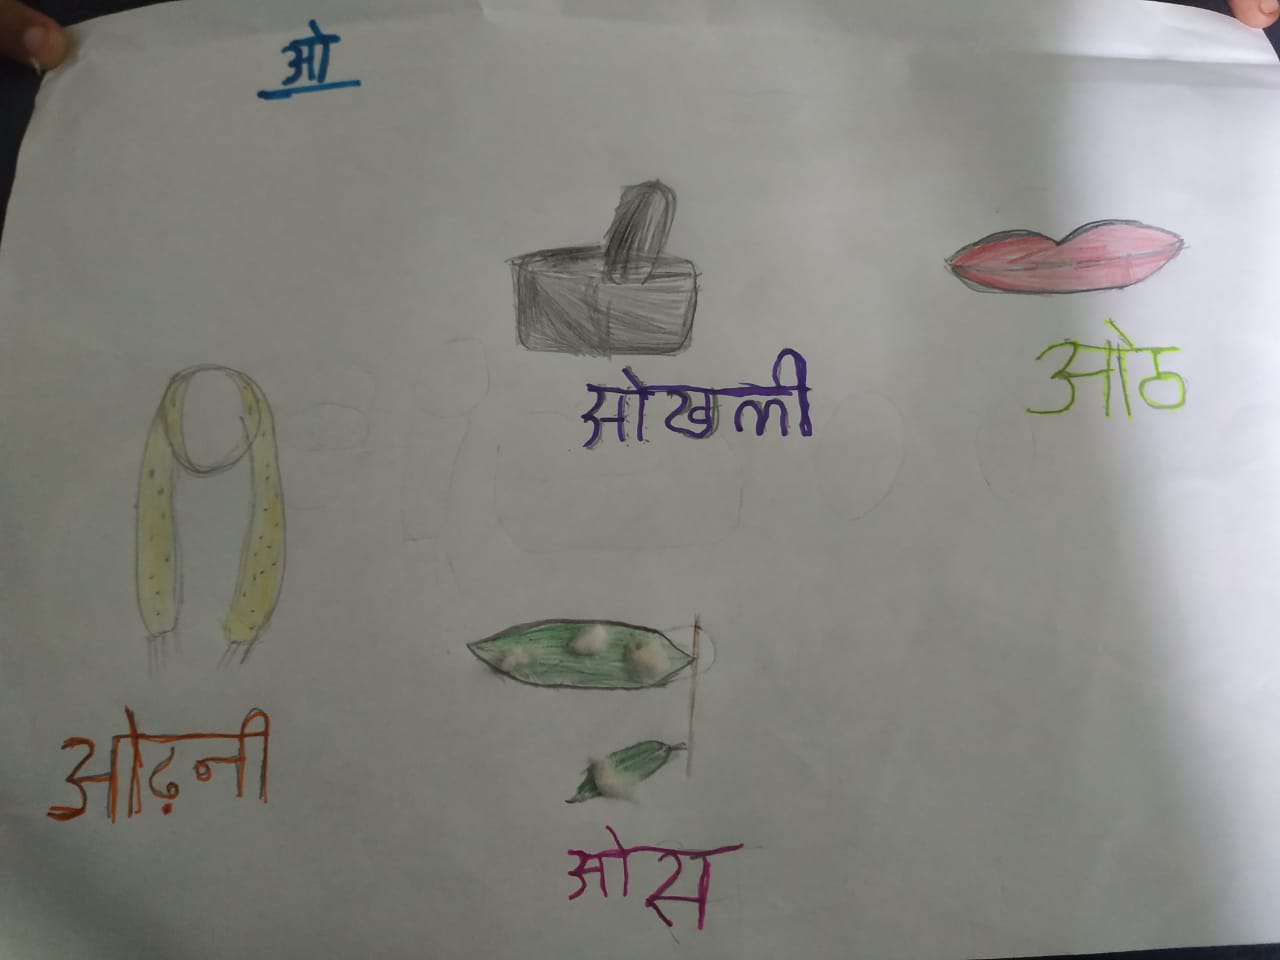 ओ
ओखली
ओठ
ओढ़नी
ओस